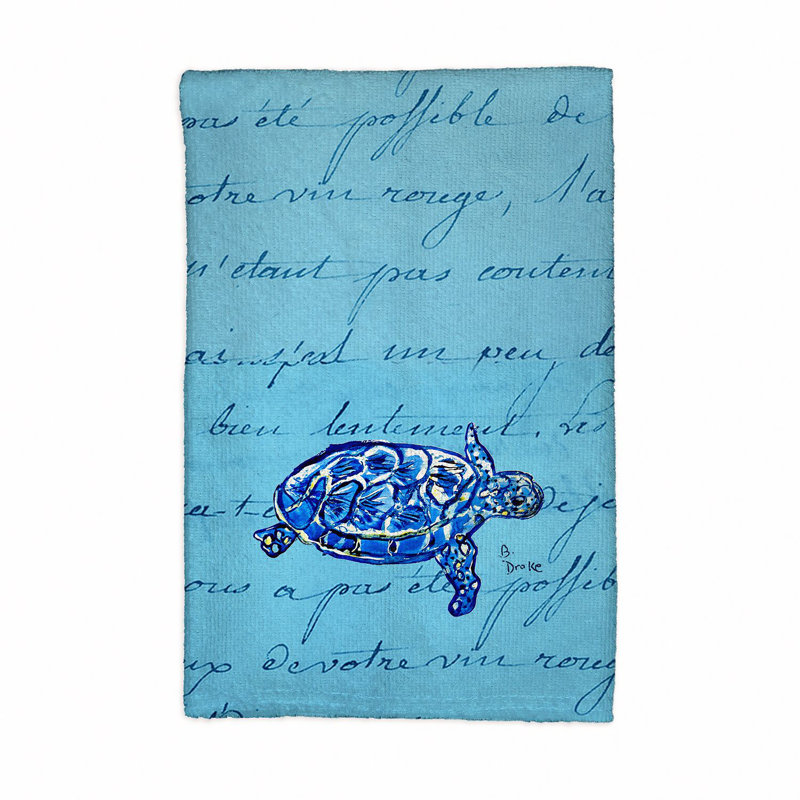 pa été possible de
otre vin rouge, N'a
n'étant pas content
un peu de
bien lentement.
a-t-
Deja
ous a pas été possib
ux de votre vin roug
B.
Drake